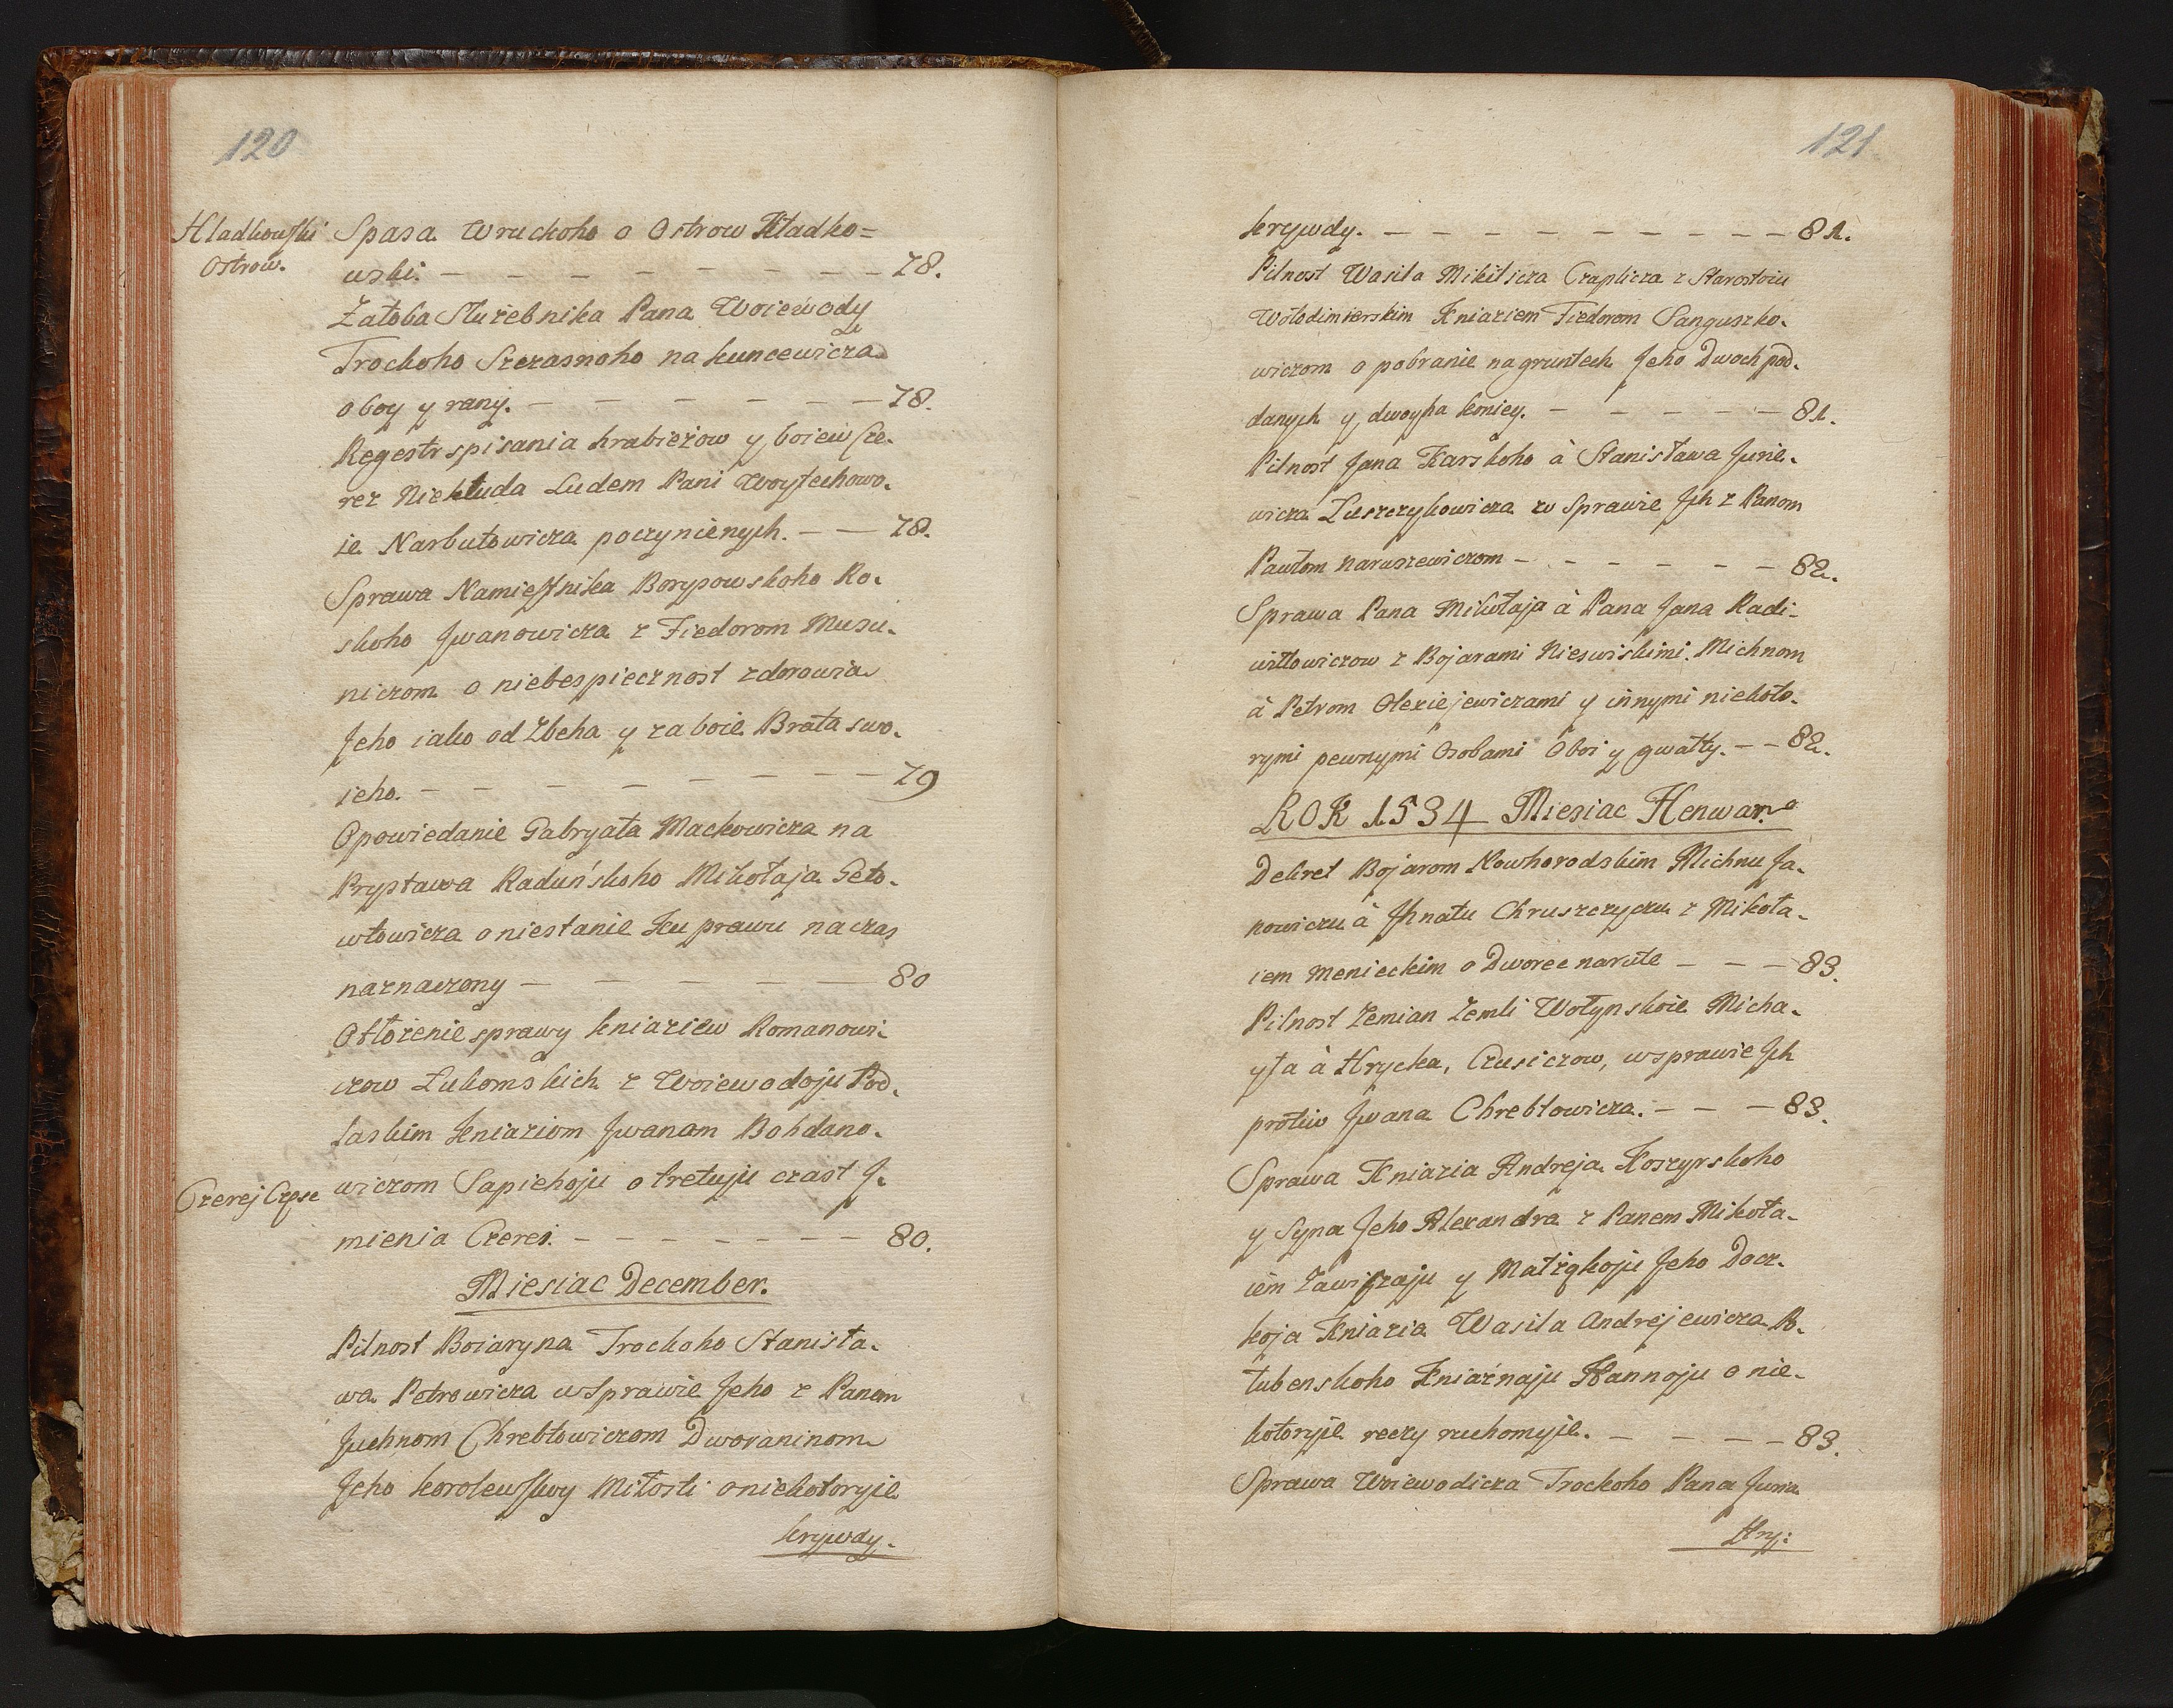 120
Hladkowski
Ostrow.
Spasa Wruckoho o Ostrow Hładko=
wski. — — — — — — — 78.
Żałoba Służebnika Pana Woiewody
Trockoho Szczasnoho na kuncewicza
o boy y rany. — — — — — — 78.
Regestr spisania hrabieżow y boiew cze-
rez Niekłuda Ludem Pani Woytechowo-
ie Narbutowicza poczynienych. — — 78.
Sprawa Namiestnika Borysowskoho Ko-
skoho Jwanowicza z Fiedorom Musu-
niczom o niebespiecznost zdorowia
Jeho iako od Zbeha y za boie Brata swo-
ieho. — — — — — — — — 79
Opowiedanie Gabryała Mackowicza na
Prystawa Raduńskoho Mikołaja Geto-
wtowicza o niestanie ku prawu na czas
naznaczony — — — — — — 80
Otłożenie sprawy kniaziew Romanowi-
czow Łukomskich z Woiewodoju Pod-
laskim Kniaziom Jwanom Bohdano-
Czerej Częsc
wiczom Sapiehoju o tretuju czast J-
mienia Czerei. — — — — — — — 80.
Miesiac December.
Pilnost Boiaryna Trockoho Stanisła-
wa Petrowicza w Sprawie Jeho z Panom
Juchnom Chrebtowiczom Dworaninom
Jeho korolewskoy Miłosti o niekotoryie
krywdy.
121
krywdy. — — — — — — — — — 81.
Pilnost Wasila Mikiticza Czaplicza z Starostoiu
Wołodimierskim Kniaziem Fiedorom Sanguszko-
wiczom o pobranie na gruntech Jeho Dwoch pod-
danych y dwoyha koniey. — — — — — 81.
Pilnost Jana Karskoho à Stanisława Jurie-
wicza Luszczykowicza w Sprawie Jch z Panom
Pawłom naruszewiczom — — — — — — 82.
Sprawa Pana Mikołaja à Pana Jana Radi-
wiłłowiczow z Bojarami Nieswiskimi Michnom
à Petrom Olexiejewiczami y innymi niekoto-
rymi pewnymi Osobami O boi y gwałty. — — 82.
ROK 1534 Miesiac Henwar.
Dekret Bojarom Nowhorodskim Michnu Ja-
nowiczu à Jhnatu Chruszczyczu z Mikoła-
iem Menieckim o Dworec narute — — — 83.
Pilnost Zemian Zemli Wołynskoie Micha-
yła à Hrycka, Czusiczow, w sprawie Jch
protiw Jwana Chrebtowicza. — — — 83.
Sprawa Kniazia Andreja Koszyrskoho
y Syna Jeho Alexandra z Panem Mikoła-
iem Zawiszaju y Matżqkoju Jeho Docz-
koja Kniazia Wasila Andrejewicza Po-
łubenskoho Kniaźnaju Hannoju o nie-
kotoryie reczy ruchomyie. — — — — 83.
Sprawa Woiewodicza Trockoho Pana Juria
Hry: